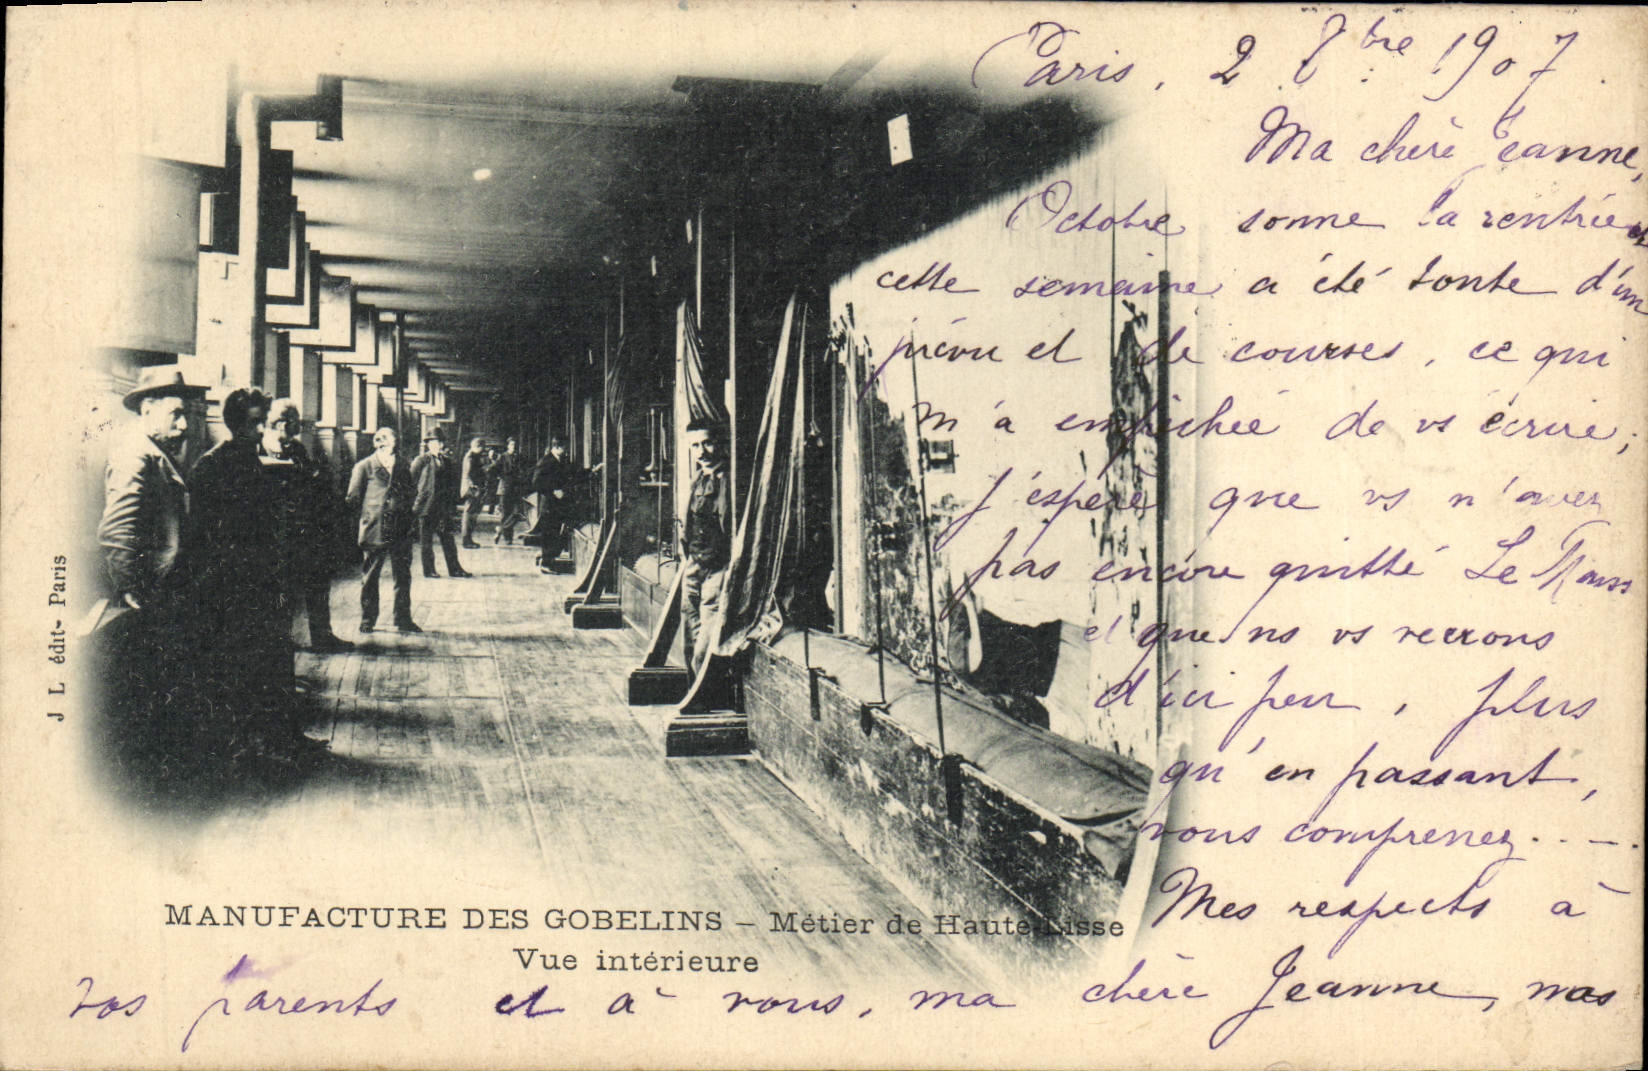 Paris, 2 8bre 1907.
Ma chère Jeanne,
Octobre sonne la rentrée et
cette semaine a été toute d'im
prévu et de courses, ce qui
m'a empêchée de vs écrire;
j'espère que vs n'avez
pas encore quitté Le
et que ns vs verrons
d'ici peu, plus
qu'en passant,
vous comprenez...
Mes respects à
vos parents et à vous, ma chère Jeanne, mes
MANUFACTURE DES GOBELINS – Métier de Haute-Lisse
Vue intérieure
J L édit- Paris